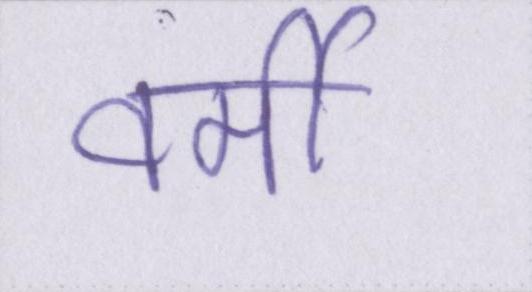 वर्मी